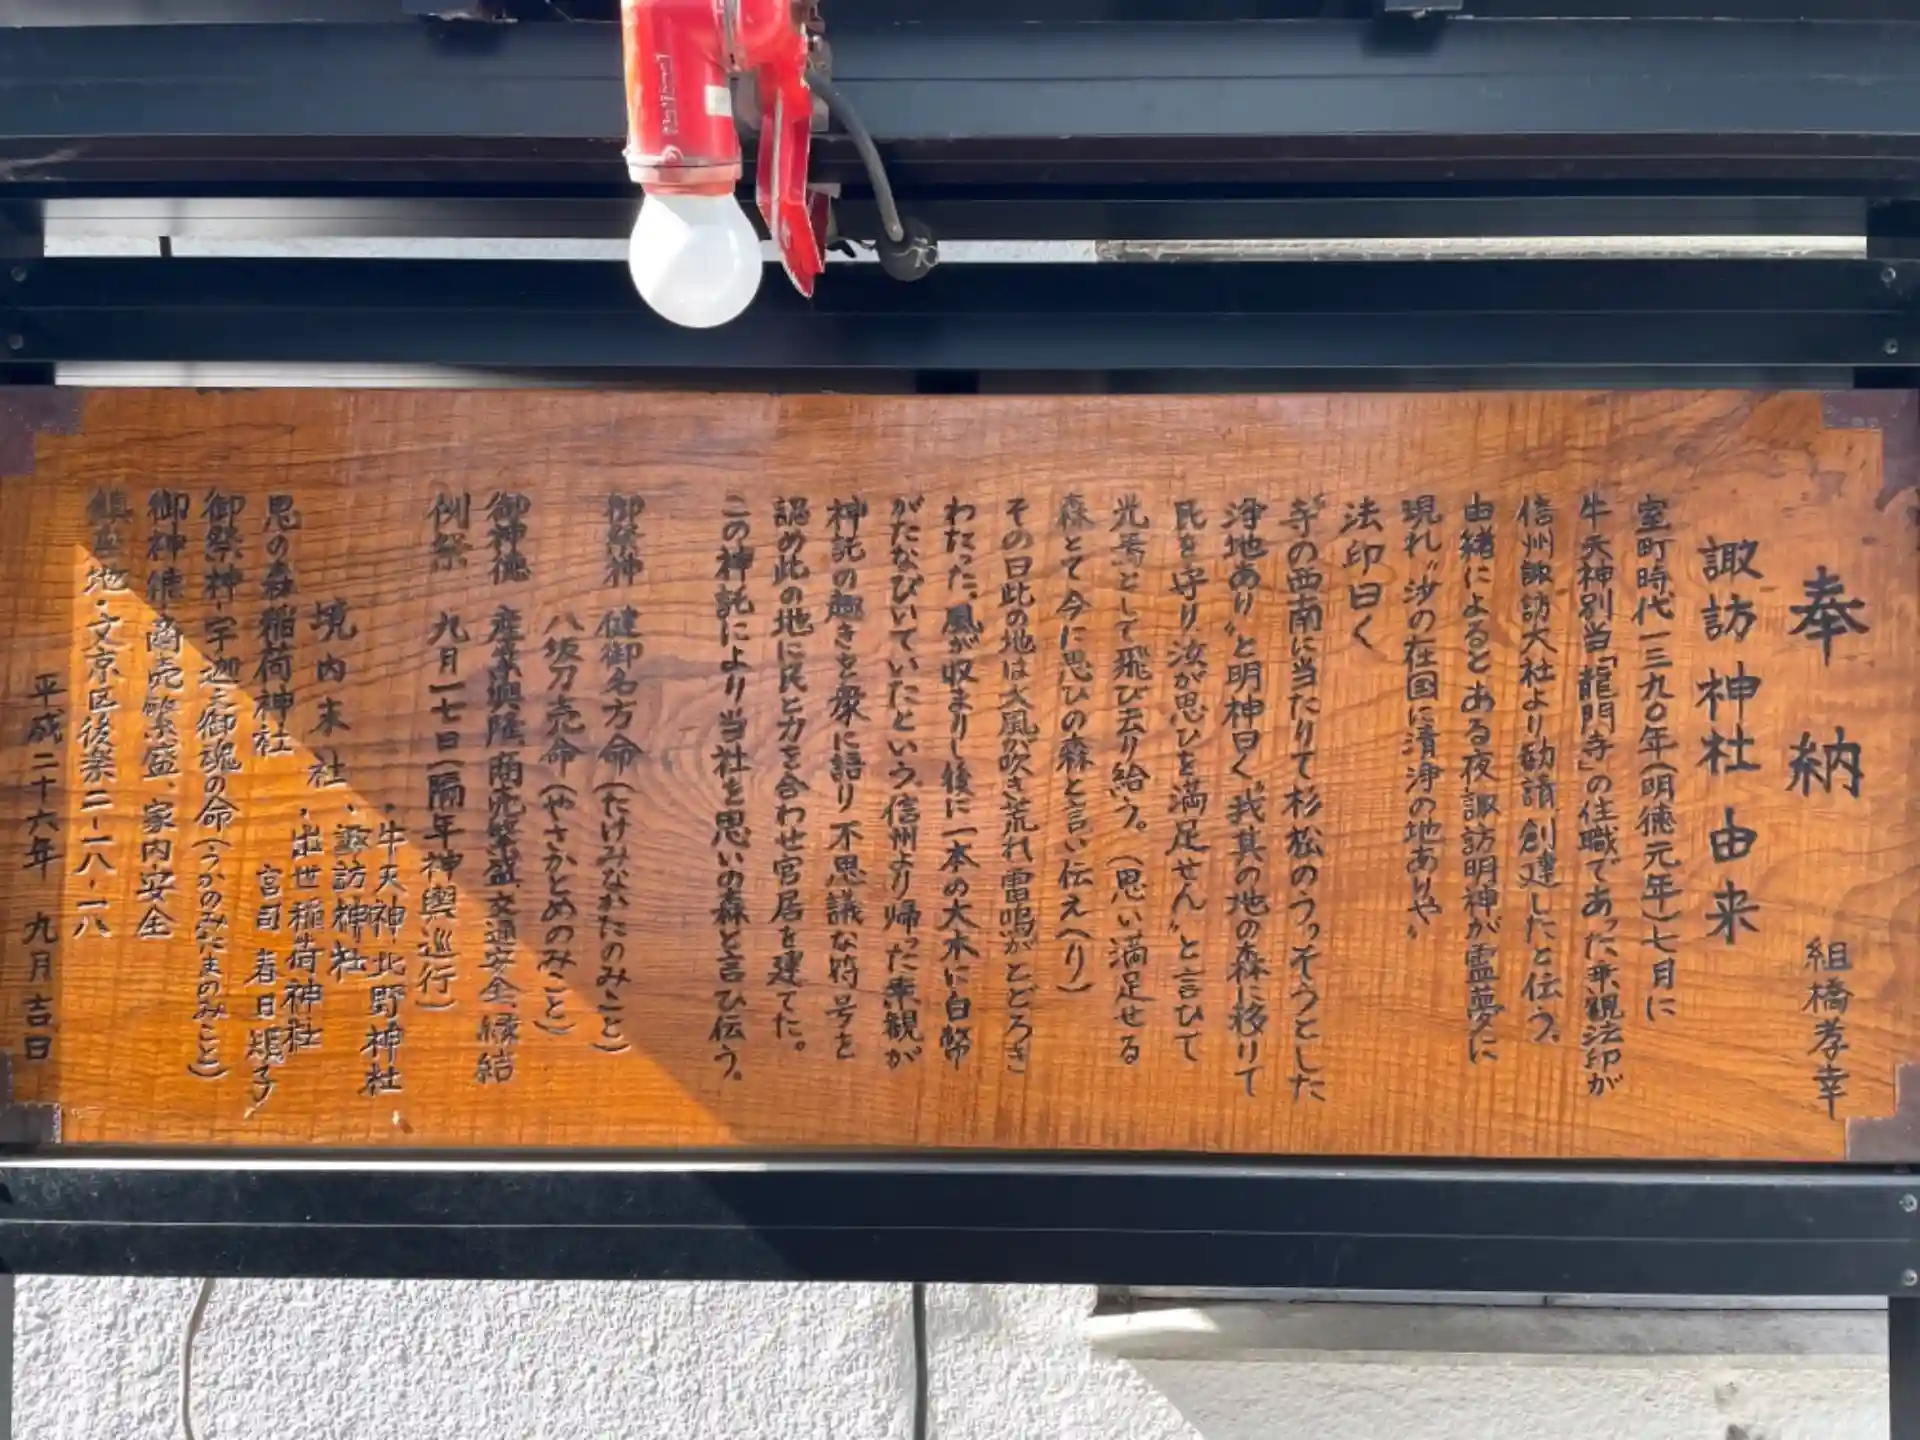 奉納
組橋孝幸
諏訪神社由来
室町時代一三九〇年(明徳元年)七月に
牛天神別当「龍門寺」の住職であった乗観法印が
信州諏訪大社より勧請、創建したと伝う。
由緒によるとある夜諏訪明神が霊夢に
現れ〝汝の在国に清浄の地ありや〟
法印曰く
寺の西南に当たりて杉松のうっそうとした
浄地あり〟と明神曰く〝我其の地の森に移りて
民を守り汝が思ひを満足せん〟と言ひて
光焉として飛び去り給う。(思い満足せる
森とて今に思ひの森と言い伝えへり)
その日此の地は大風が吹き荒れ雷鳴がとどろき
わたった。風が収まりし後に一本の大木に白幣
がたなびいていたという。信州より帰った乗観が
神託の趣きを衆に語り不思議な符号を
認め此の地に民と力を合わせ宮居を建てた。
この神託により当社を思いの森と言ひ伝う。
御祭神 健御名方命(たけみなかたのみこと)
八坂刀売命(やさかとめのみこと)
御神徳 産業興隆、商売繁盛、交通安全、縁結
例祭 九月一七日(隔年神輿巡行)
境内末社
・牛天神北野神社
・諏訪神社
・出世稲荷神社
思の森稲荷神社
宮司 春日頌子
御祭神・宇迦之御魂の命(うかのみたまのみこと)
御神徳・商売繁盛、家内安全
鎮座地・文京区後楽二-一八-一八
平成二十六年 九月吉日